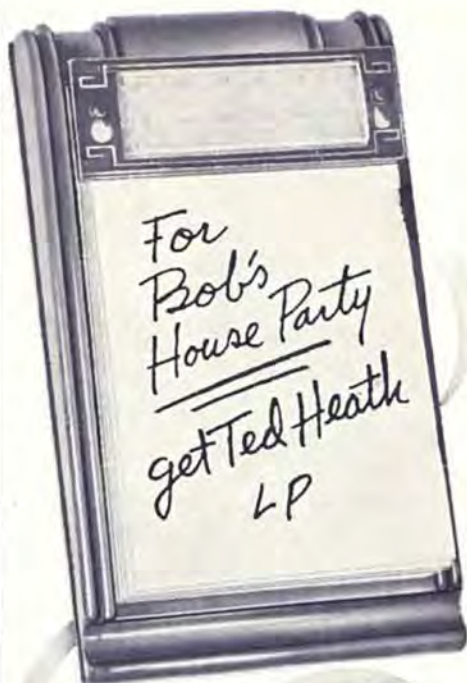 For
Bob's
House Party
get Ted Heath
LP